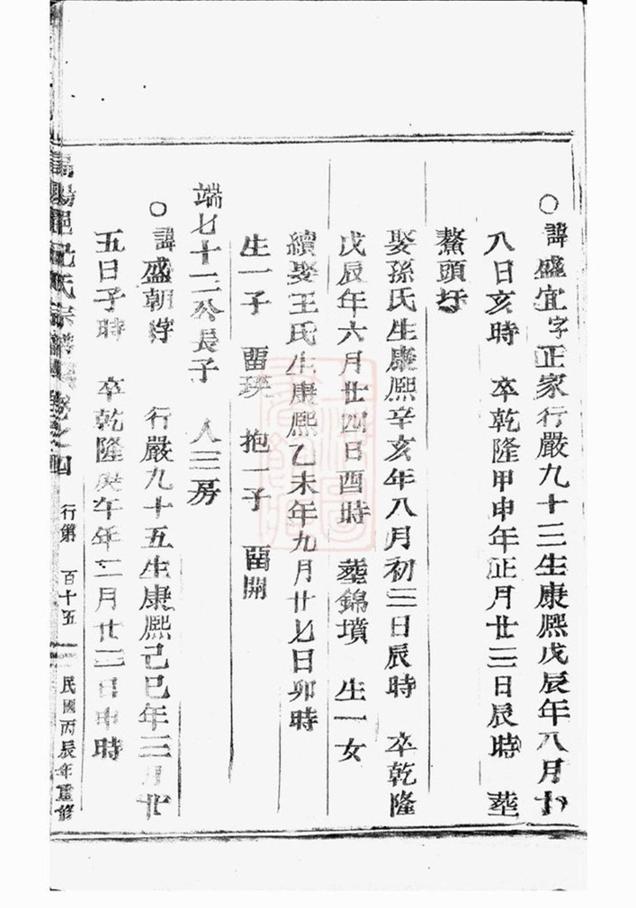 ○諱盛宜字正家行嚴九十三生康熙戊辰年八月十
八日亥時 卒乾隆甲申年正月廿三日辰時 葬
鰲頭圩
娶孫氏生康熙辛亥年八月初三日辰時 卒乾隆
戊辰年六月廿四日酉時 葬錦墳 生一女
續娶王氏生康熙乙未年九月廿七日卯時
生一子 留瑛 抱一子 留開
端七十二公長子 人三房
○諱盛朝字 行嚴九十五生康熙己巳年三月廿
五日子時 卒乾隆庚午年二月廿三日申時
氏宗譜 卷之四 行第 百十五 民國丙辰年重修